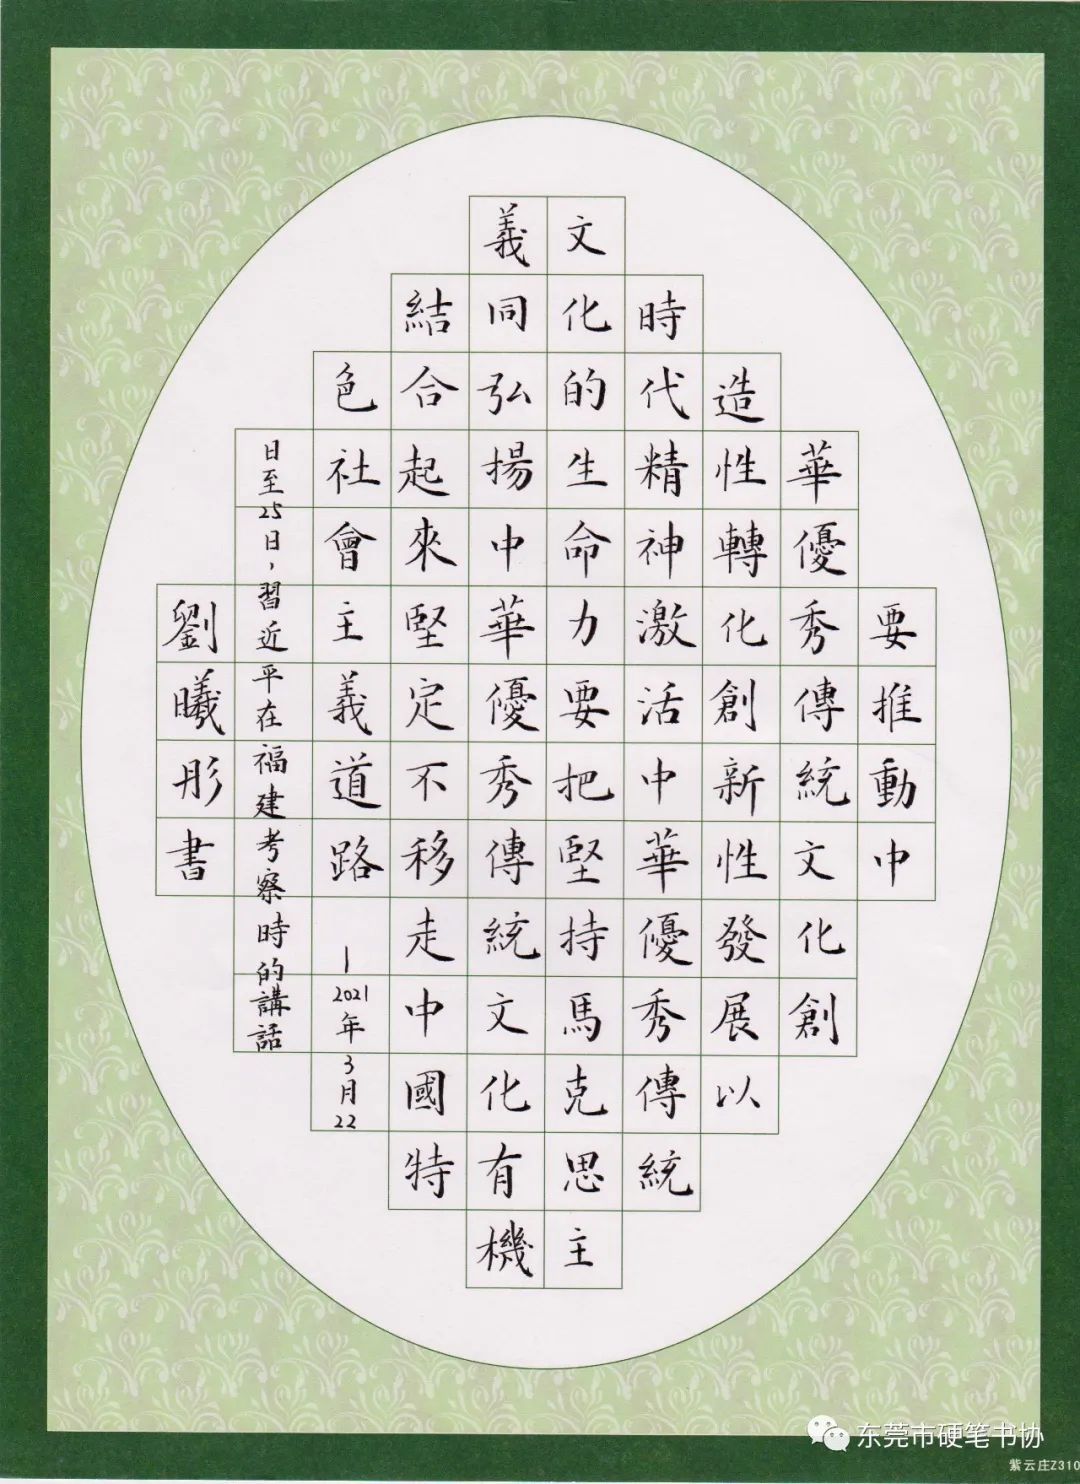 要推動中
華優秀傳統文化創
造性轉化創新性發展以
時代精神激活中華優秀傳統
文化的生命力要把堅持馬克思主
義同弘揚中華優秀傳統文化有機
結合起來堅定不移走中國特
色社會主義道路—2021年3月22
日至25日，習近平在福建考察時的講話
劉曦彤書
东莞市硬笔书协
紫云庄Z310